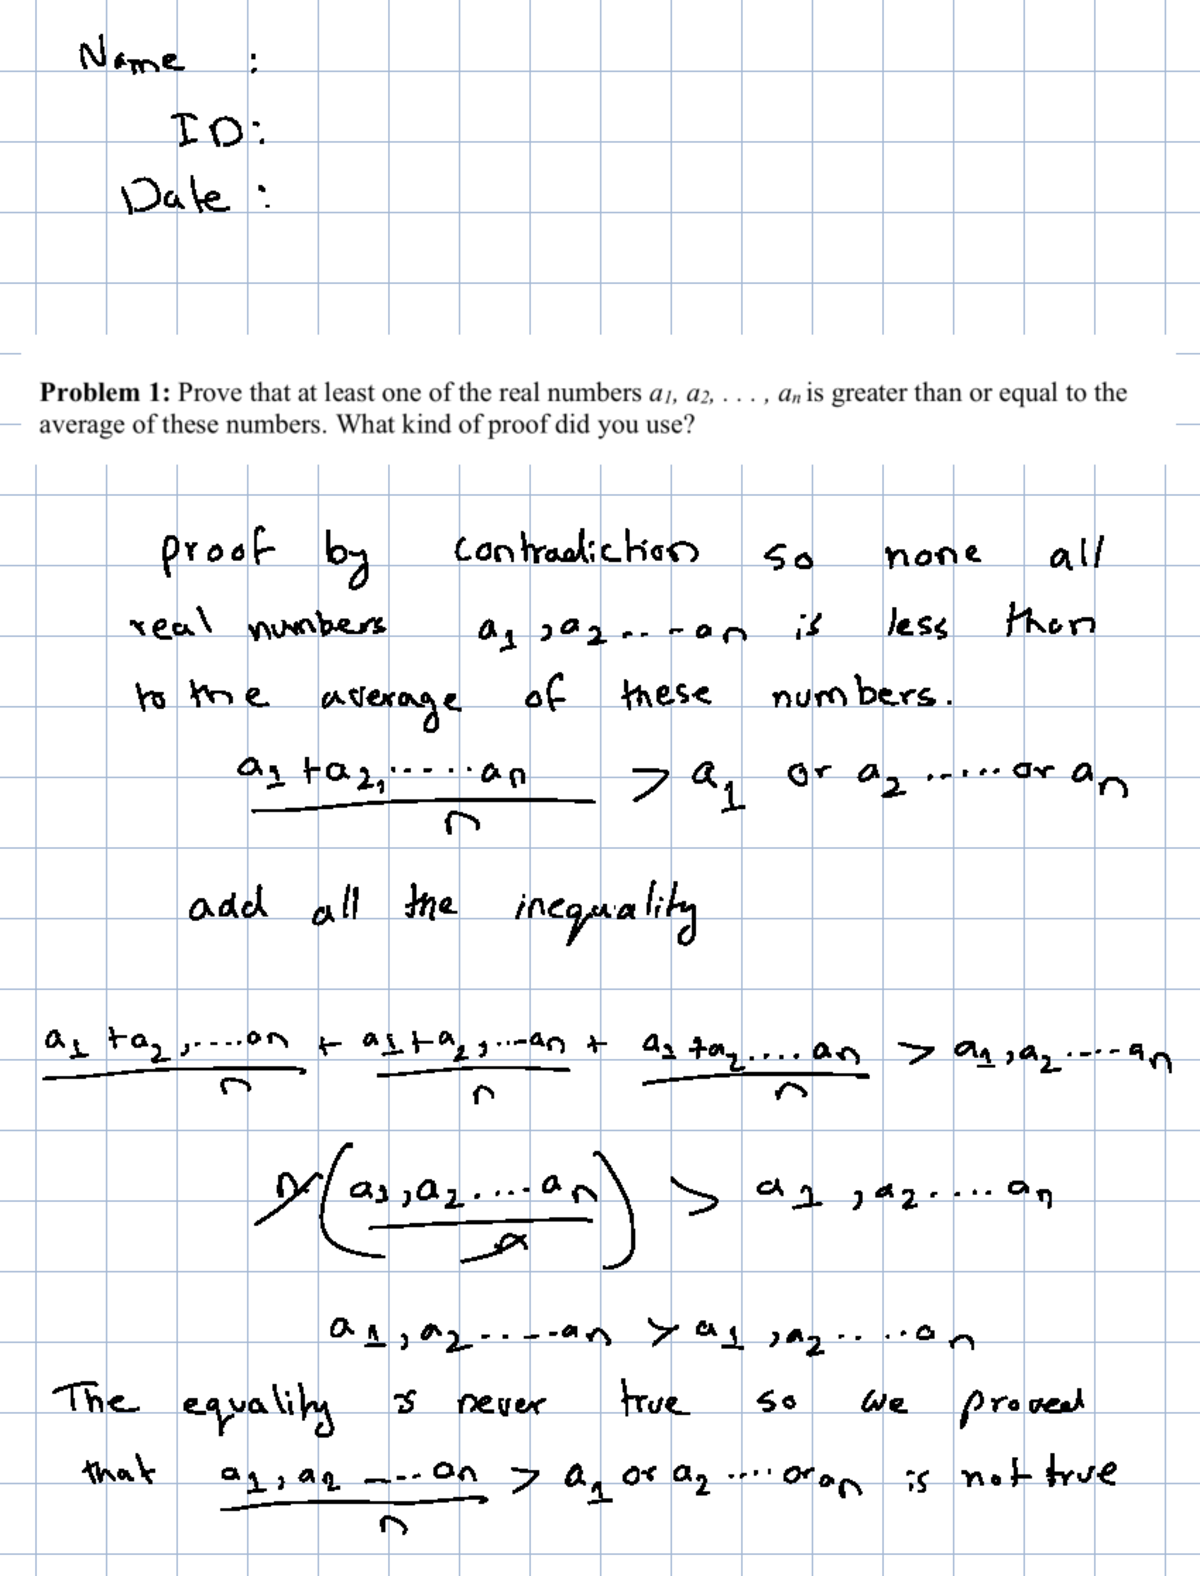 Name :
ID:
Date :
Problem 1: Prove that at least one of the real numbers a1, a2, . . . , an is greater than or equal to the
average of these numbers. What kind of proof did you use?
proof by contradiction so none all
real numbers a1 , a2 .. - an is less than
to the average of these numbers.
a1 + a2, ...... an > a1 or a2 ...... or an
n
add all the inequality
a1 + a2 , ..... an + a1 + a2 , ... an + a1 + a2 .... an > a1 , a2 ..... an
n n n
n ( a1 , a2 ..... an ) > a1 , a2 ..... an
n
a1 , a2 ..... an > a1 , a2 ..... an
The equality is never true so we proved
that a1 , a2 ---.. an > a1 or a2 .... or an is not true
n